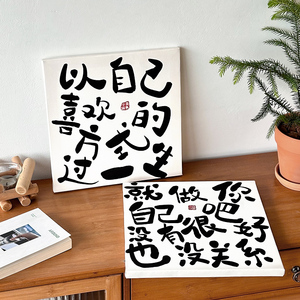 以自己
喜欢的
方式
过一生
就做你
自己吧
没有很好
也没关系